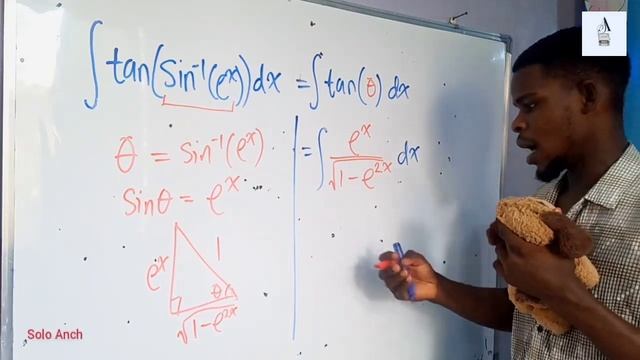 ∫ tan(Sin⁻¹(eˣ))dx = ∫ tan(θ) dx
θ = sin⁻¹(eˣ)
Sinθ = eˣ
eˣ
1
θ
√1-e²ˣ
= ∫ eˣ/√1-e²ˣ dx
Solo Anch